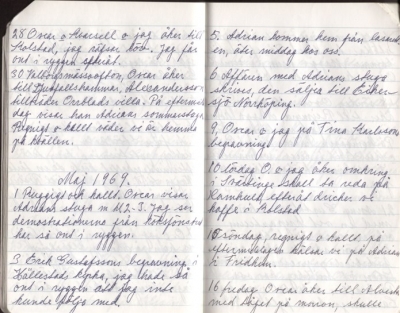 28 Oscar o jag åker till
Bolstad, jag räfsar löv. Jag får
ont i ryggen efteråt.
30 Valborgsmässoafton, Oscar åker
till
tillträder villa. På efterm
dag visar han Adrians sommarstuga
Regnigt o kallt väder vi är hemma
på kvällen.
Maj 1969.
1 Ruggigt och kallt, Oscar visar
Adrians stuga Jag ser
demostrationerna från köksfönstret
har så ont i ryggen.
3 Erik Gustafssons begravning i
Hällestads kyrka, jag hade så
ont i ryggen att jag inte
kunde följa med.
5, Adrian kommer hem från lasaret
en, äter middag hos oss.
6 Affären med Adrians stuga
skrives, den säljes till
Norrköping.
9, Oscar o jag på Tina Karlssons
begravning
10 lördag O. o jag åker omkring
i skall ta reda på
efteråt dricker vi
kaffe i Bolstad
15 söndag, regnigt o kallt på
eftermiddagen hälsar vi på Adrian
i Fridhem.
16 fredag Oscar åker till
med tåget på morron, skulle